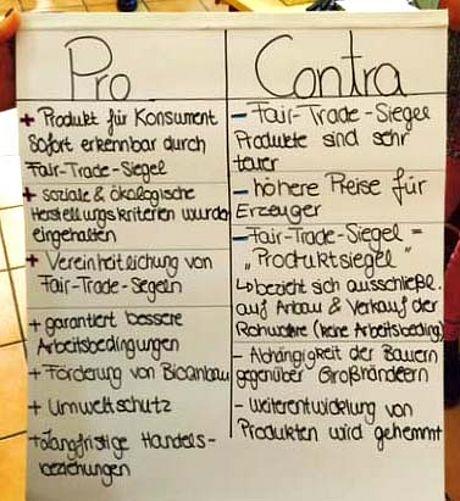 Pro
+ Produkt für Konsument
Sofort erkennbar durch
Fair-Trade-Siegel
+ soziale & ökologische
Herstellungskriterien wurde
eingehalten
+ Vereinheitlichung von
Fair-Trade-Siegeln
+ garantiert bessere
Arbeitsbedingungen
+ Förderung von Bioanbau
+ Umweltschutz
+ langfristige Handels-
beziehungen
Contra
- Fair-Trade-Siegel
Produkte sind sehr
teuer
- höhere Preise für
Erzeuger
- Fair-Trade-Siegel =
"Produktsiegel"
↳ bezieht sich ausschließl.
auf Anbau & Verkauf der
Rohware (keine Arbeitsbeding)
- Abhängigkeit der Bauern
gegenüber Großhändlern
- Weiterentwicklung von
Produkten wird gehemmt